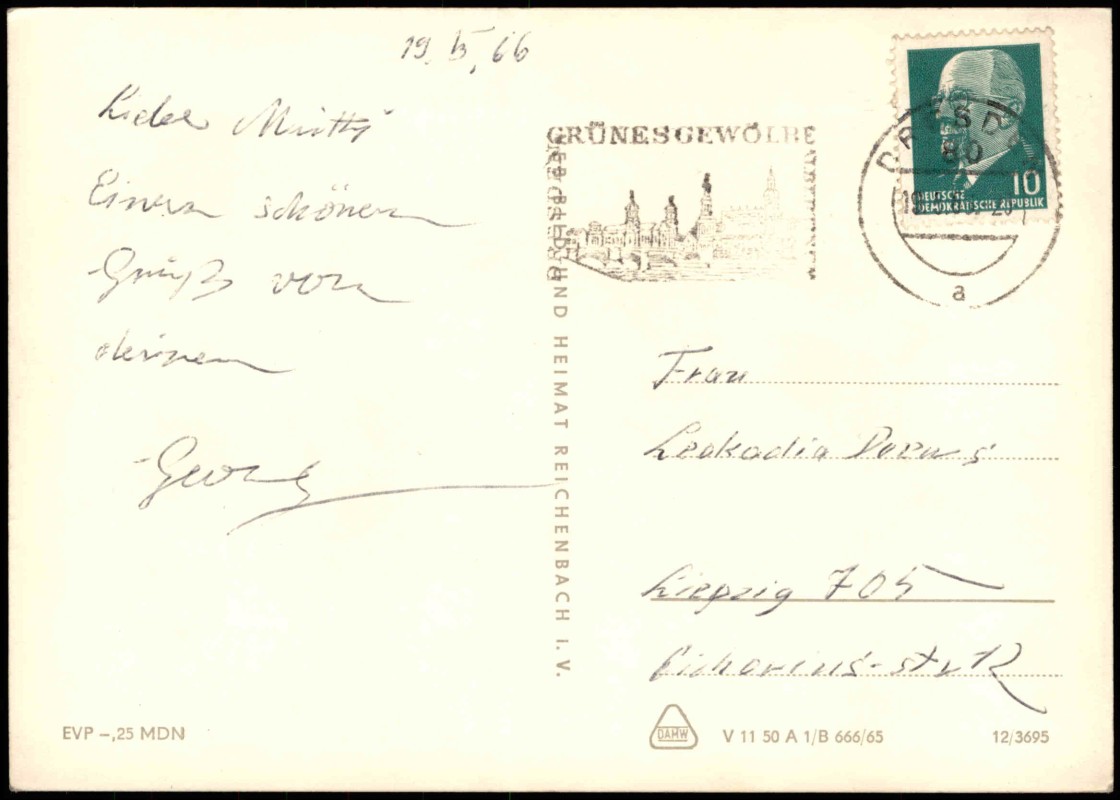 19. 5. 66
Liebe Mutti
Einen schönen
Gruß von
deinem
Georg
GRÜNES GEWÖLBE
ALBERTINUM
DRESDEN
80
a
10
DEUTSCHE
DEMOKRATISCHE REPUBLIK
BILD UND HEIMAT REICHENBACH I. V.
Frau
Leokadia
Leipzig 705
EVP –,25 MDN
DAMW
V 11 50 A 1/B 666/65
12/3695